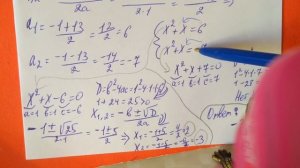 2a
a₁ = -1+13/2 = 12/2 = 6
a₂ = -1-13/2 = -14/2 = -7
{ x²+x=6
x²+x=-7
x²+x-6=0
a=1 b=1 c=-6
D=b²-4ac=1²-4·1·(-6)
1+24=25>0
x₁,₂ = -b±√D/2a
-1±√25/2·1 = -1±5/2
⇒ x₁ = -1+5/2 = 4/2 = 2
x₂ = -1-5/2 = -6/2 = -3
x²+x+7=0
a=1 b=1 c=7
1²-4·1·7
Ответ